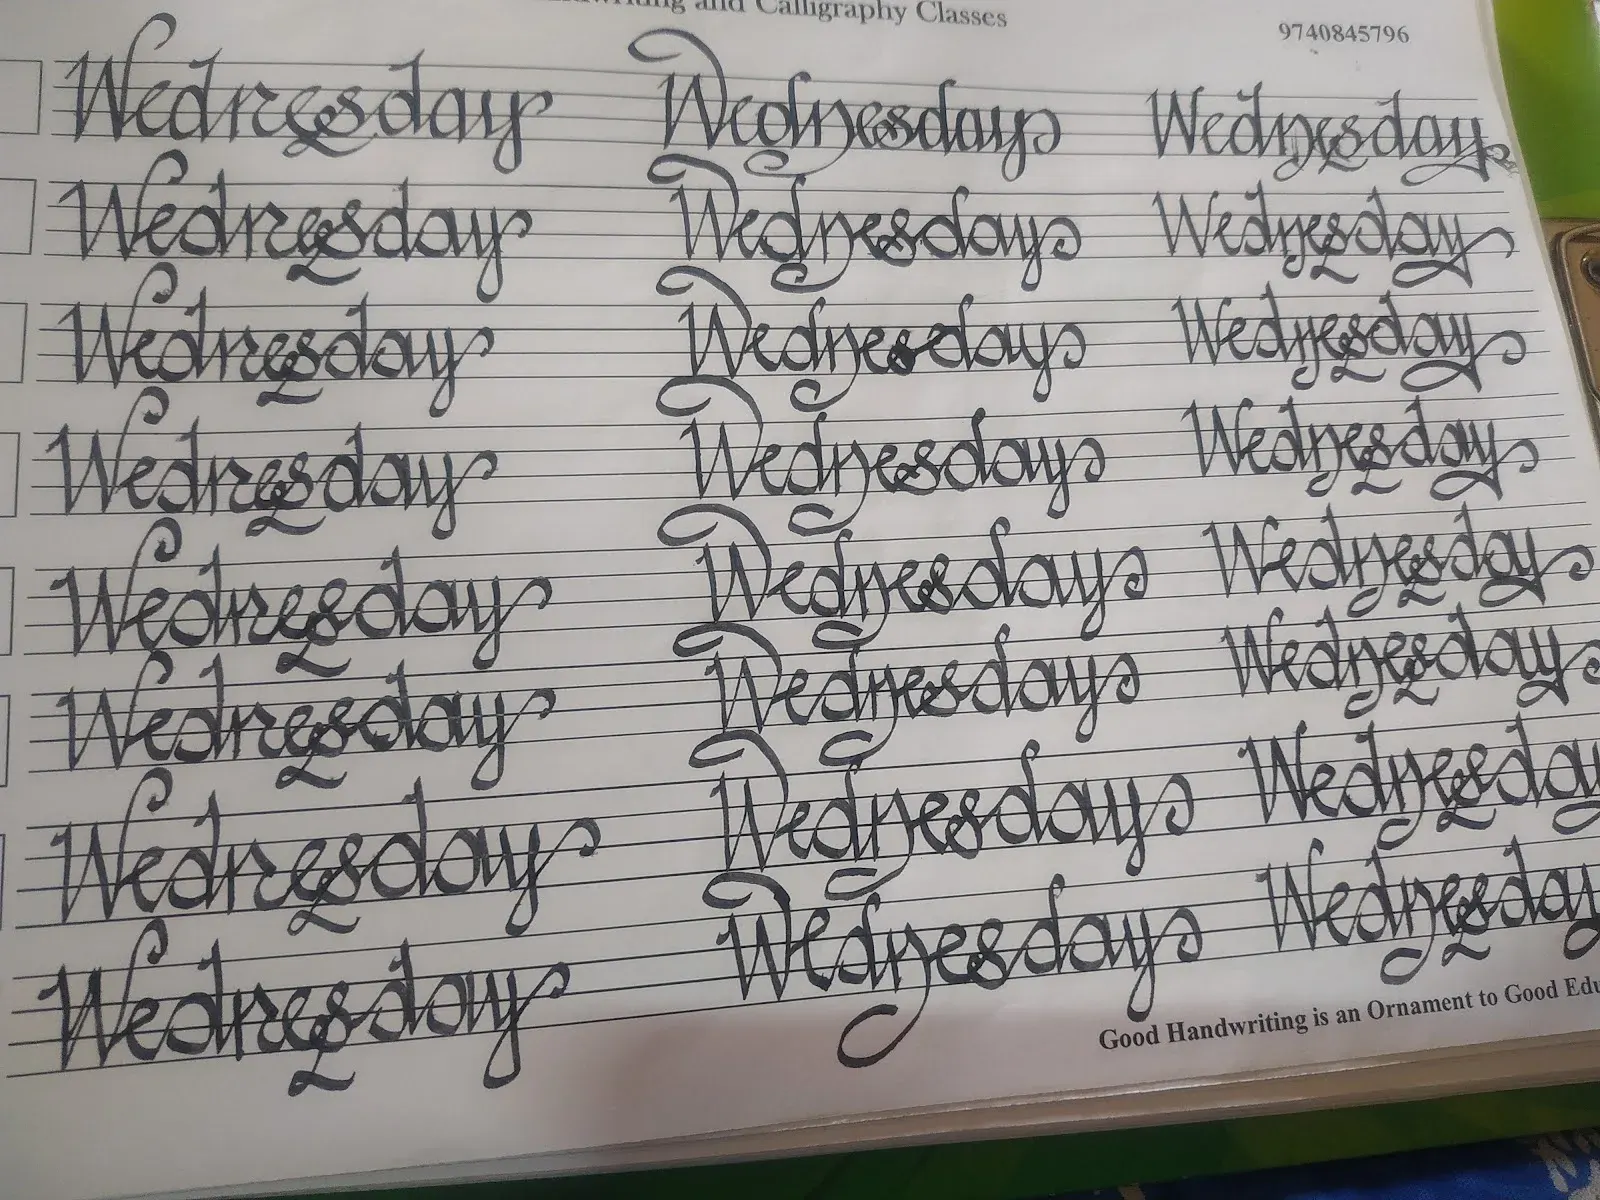 and Calligraphy Classes
9740845796
Wednesday Wednesday Wednesday
Wednesday Wednesday Wednesday
Wednesday Wednesday Wednesday
Wednesday Wednesday Wednesday
Wednesday Wednesday Wednesday
Wednesday Wednesday Wednesday
Wednesday Wednesday Wednesday
Wednesday Wednesday Wednesday
Good Handwriting is an Ornament to Good Edu